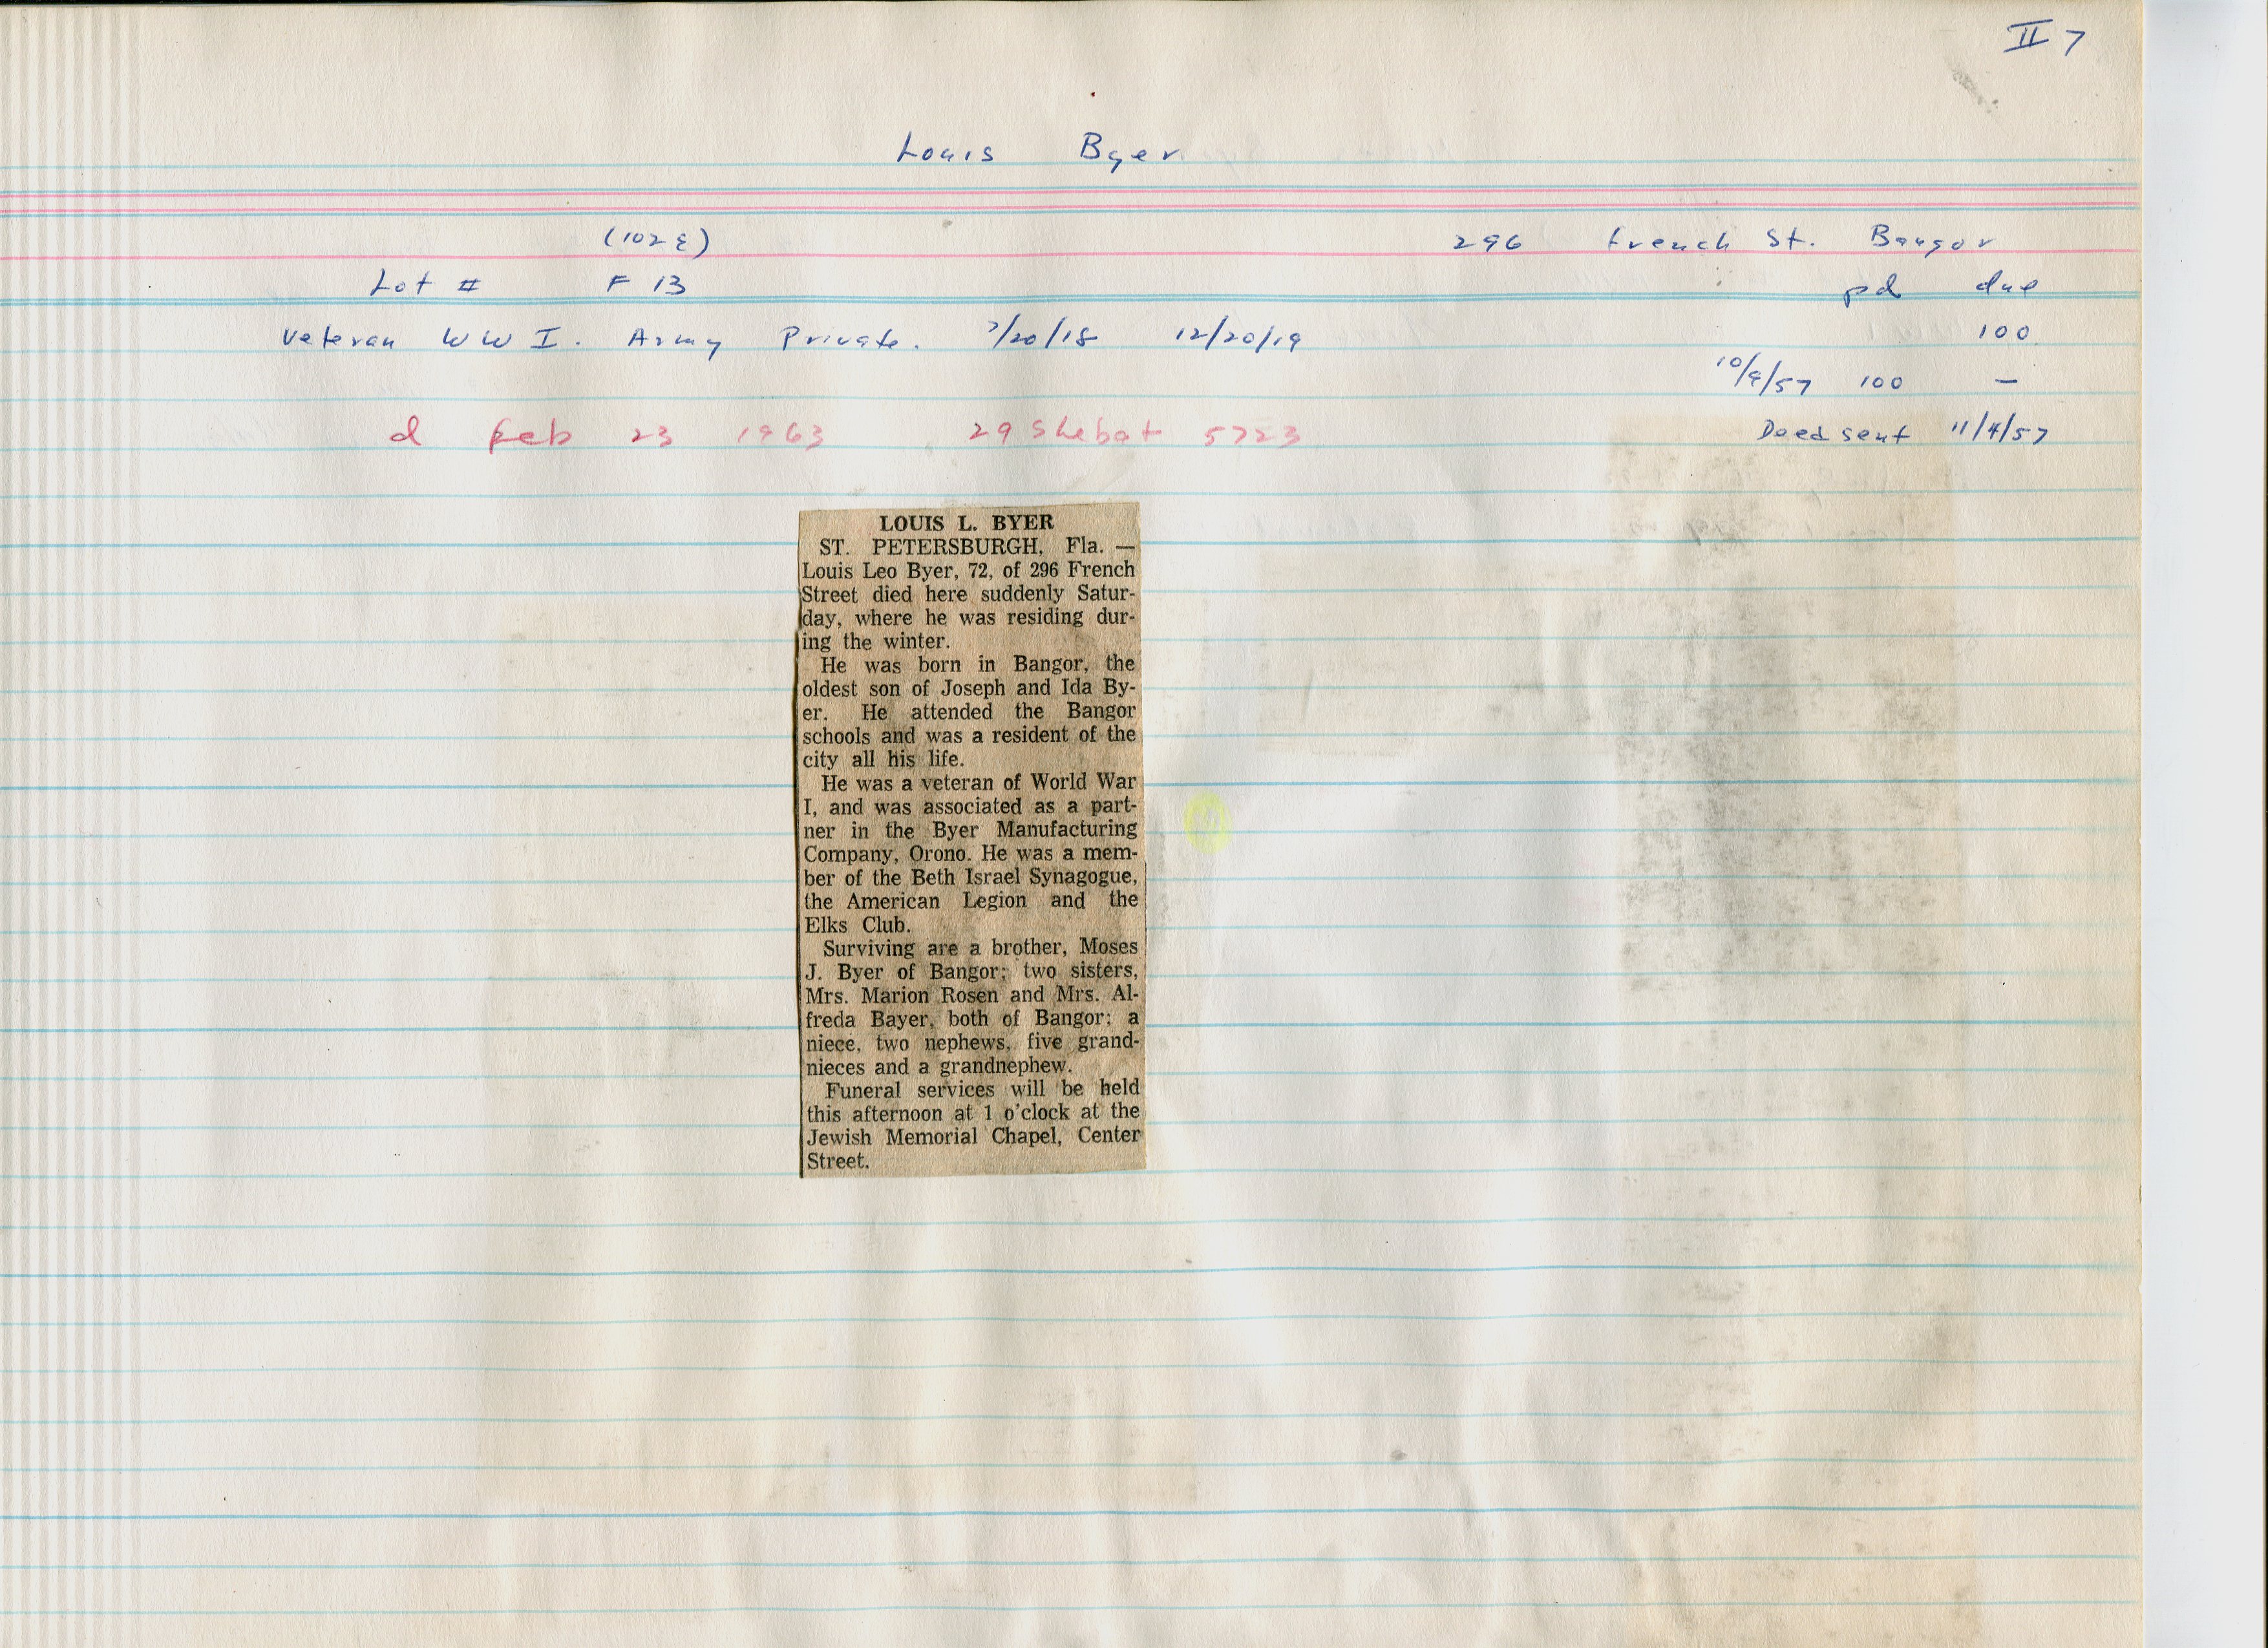 II 7
Louis Byer
(102 E) 296 French St. Bangor
Lot # F 13 pd due
Veteran WW I. Army Private. 7/20/18 12/20/19 100
10/9/57 100 —
d Feb 23 1963 29 Shebat 5723 Deed sent 11/4/57
LOUIS L. BYER
ST. PETERSBURGH, Fla. —
Louis Leo Byer, 72, of 296 French
Street died here suddenly Satur-
day, where he was residing dur-
ing the winter.
He was born in Bangor, the
oldest son of Joseph and Ida By-
er. He attended the Bangor
schools and was a resident of the
city all his life.
He was a veteran of World War
I, and was associated as a part-
ner in the Byer Manufacturing
Company, Orono. He was a mem-
ber of the Beth Israel Synagogue,
the American Legion and the
Elks Club.
Surviving are a brother, Moses
J. Byer of Bangor; two sisters,
Mrs. Marion Rosen and Mrs. Al-
freda Bayer, both of Bangor; a
niece, two nephews, five grand-
nieces and a grandnephew.
Funeral services will be held
this afternoon at 1 o'clock at the
Jewish Memorial Chapel, Center
Street.